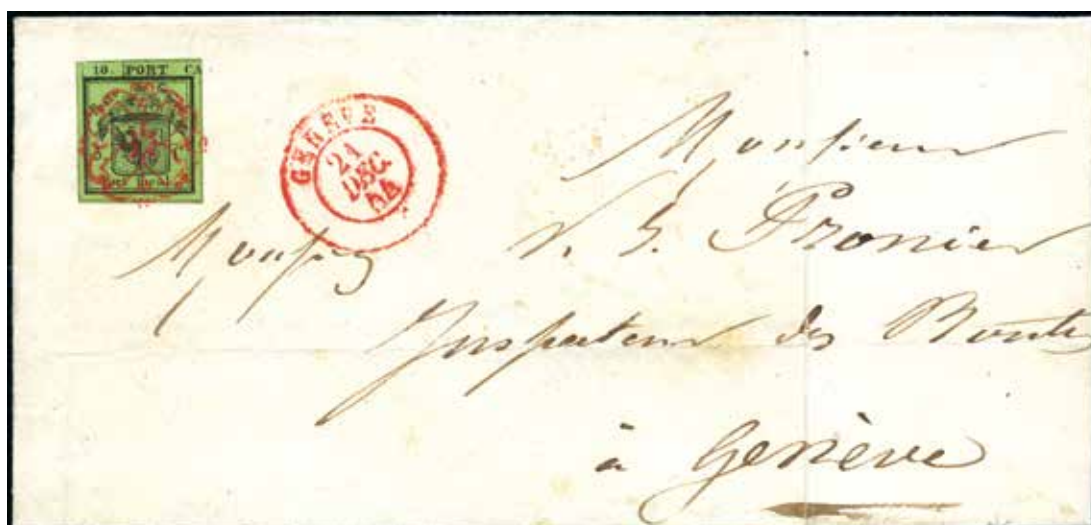 10. PORT CA
GENEVE
24
DEC.
44
Monsieur
Monsieur
Pronier
Inspecteur des
à Genève